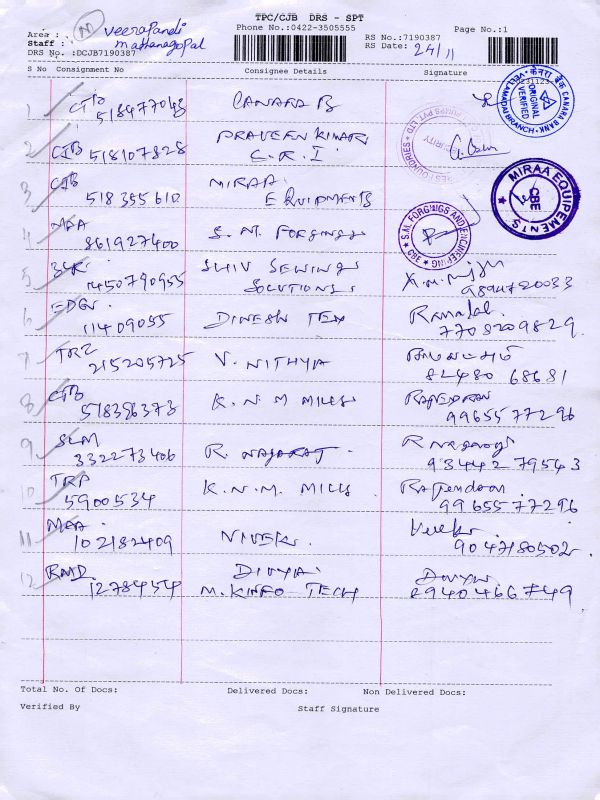 TPC/CJB DRS - SPT
Phone No.:0422-3505555
Page No.:1
Area : Veerapandi
Staff : Mathanagopal
DRS No. :DCJB7190387
RS No.:7190387
RS Date: 24/11
S No Consignment No Consignee Details Signature
1 CJB 518477043 CANARA B
CANARA BANK VELLAMADAI BRANCH ORIGINAL VERIFIED
2 CJB 518107828 PRAVEEN KUMAR
C.R.I
3 CJB 518355610 MIRAA
EQUIPMENTS
MIRAA EQUIPEMENTS CBE
4 MAA 861927400 S.M. FORGINGS
S.M. FORGINGS AND ENGINEERING
5 1450790955 SHIV SEWING
SOLUTIONS
9894720033
6 11409055 DINESH TEX
7708209829
7 TRZ 215205725 V. NITHYA
82480 68681
8 CJB 518386373 K.N.M MILLS RAJENDRAN
99655 77296
9 SLM 332273406 R. NAGARAJ R Nagaraj
93442 79543
10 TRP 5900534 K.N.M. MILLS Rajendran
99655 77296
11 MAA 102182409 VIVEK Vivek
9047180502
12 RMD 12784554 DIVYA Divya
M.K INFO TECH 8940466749
Total No. Of Docs: Delivered Docs: Non Delivered Docs:
Verified By Staff Signature